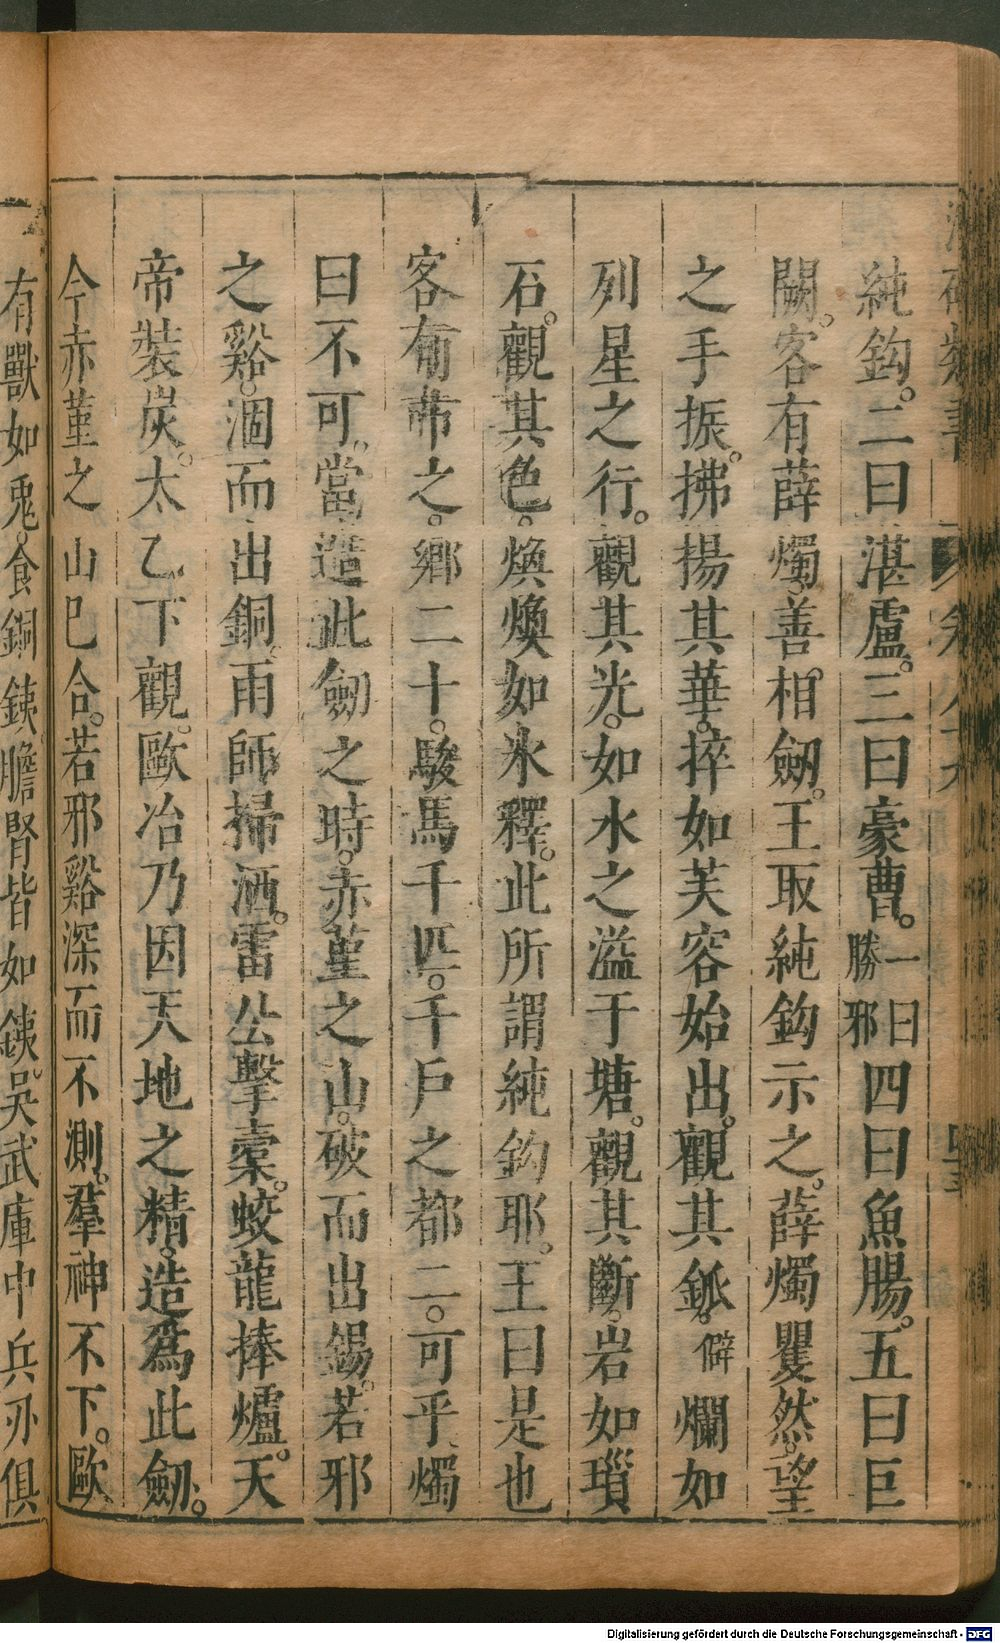 純鈎。二曰湛盧。三曰豪曹。一曰勝邪四曰魚腸。五曰巨
闕。客有薛燭。善相劒。王取純鈎示之。薛燭矍然。望
之手振。拂揚其華。捽如芙容始出。觀其釽。僻爛如
列星之行。觀其光。如水之溢于塘。觀其斷。岩如瑣
石。觀其色。煥煥如氷釋。此所謂純鈎耶。王曰是也
客有市之。鄉二十。駿馬千匹。千戶之都二。可乎燭
曰不可。當造此劒之時。赤堇之山。破而出錫。若邪
之谿。涸而出銅。雨師掃洒。雷公擊橐。蛟龍捧爐。天
帝裝炭。太乙下觀。歐冶乃因天地之精。造爲此劒。
今赤堇之山已合。若邪谿深而不測。羣神不下。歐
有獸如兎。食銅鐵膽腎皆如鐵。吳武庫中兵刃俱
Digitalisierung gefördert durch die Deutsche Forschungsgemeinschaft - DFG